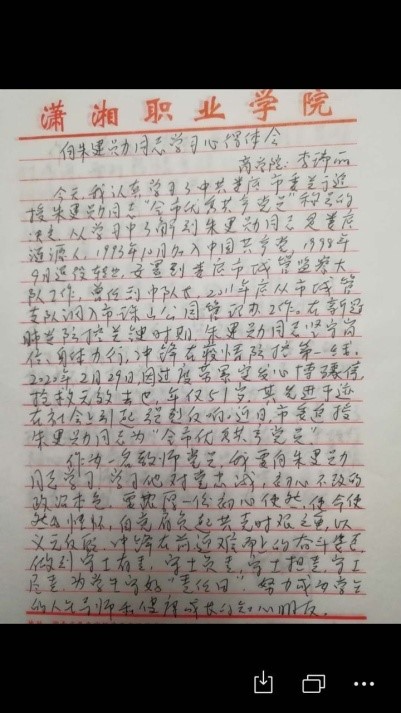 潇湘职业学院
向朱建勋同志学习心得体会
商学院：李
今天，我认真学习了中共娄底市委关于追
授朱建勋同志“全市优秀共产党员”称号的
决定，从学习中了解到朱建勋同志是娄底
涟源人，1993年10月加入中国共产党，1998年
9月退役转业，安置到娄底市城管监察大
队工作，曾任副中队长，2011年底从市城管
支队调入市珠山公园管理办工作。在新冠
肺炎防控关键时期，朱建勋同志坚守岗
位，身体力行，冲锋在疫情防控第一线。
2020年2月29日，因过度劳累突发心博骤停，
抢救无效去世，年仅51岁，其先进事迹
在社会上引起强烈反响，近日，市委追授
朱建勋同志为“全市优秀共产党员”
作为一名教师党员，我要向朱建勋
同志学习，学习他对党忠诚，初心不改的
政治本色，要 一份初心使然，使命使
然的情怀，自觉肩负起共克时艰之重，以
义无反顾、冲锋在前，迎难而上的奋斗姿态
做到守土有责，守土负责，守土担责，守土
尽责，为学生守好“责任田”，努力成为学生
的人生导师和健康成长的知心朋友。